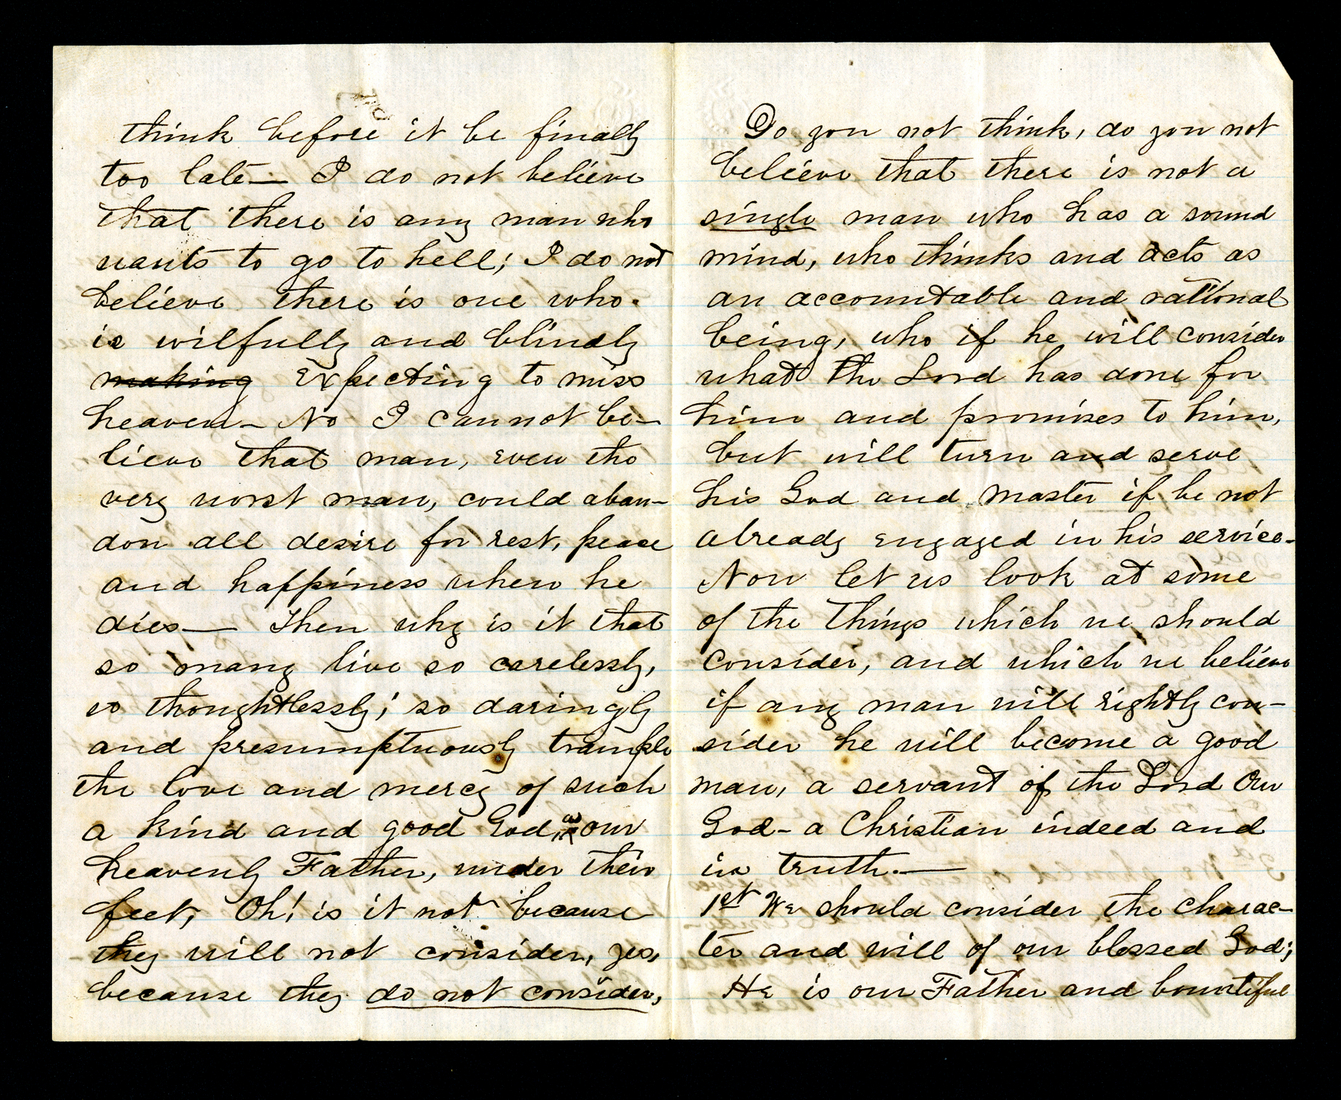 think before it be finally
too late— I do not believe
that there is any man who
wants to go to hell; I do not
believe there is one who
is wilfully and blindly
making expecting to miss
heaven— No I cannot be-
lieve that man, even the
very worst man, could aban-
don all desire for rest, peace
and happiness when he
dies— Then why is it that
so many live so carelessly,
so thoughtlessly; so daringly
and presumptuously trample
the love and mercy of such
a kind and good God, as our
heavenly Father, under their
feet, Oh! is it not because
they will not consider, yes,
because they do not consider,
Do you not think, do you not
believe that there is not a
single man who has a sound
mind, who thinks and acts as
an accountable and rational
being, who if he will consider
what the Lord has done for
him and promises to him,
but will turn and serve
his God and Master if he not
already engaged in his service—
Now let us look at some
of the things which we should
consider, and which we believe
if any man will rightly con-
sider he will become a good
man, a servant of the Lord Our
God— a Christian indeed and
in truth.—
1st We should consider the charac-
ter and will of our blessed God;
He is our Father and bountiful